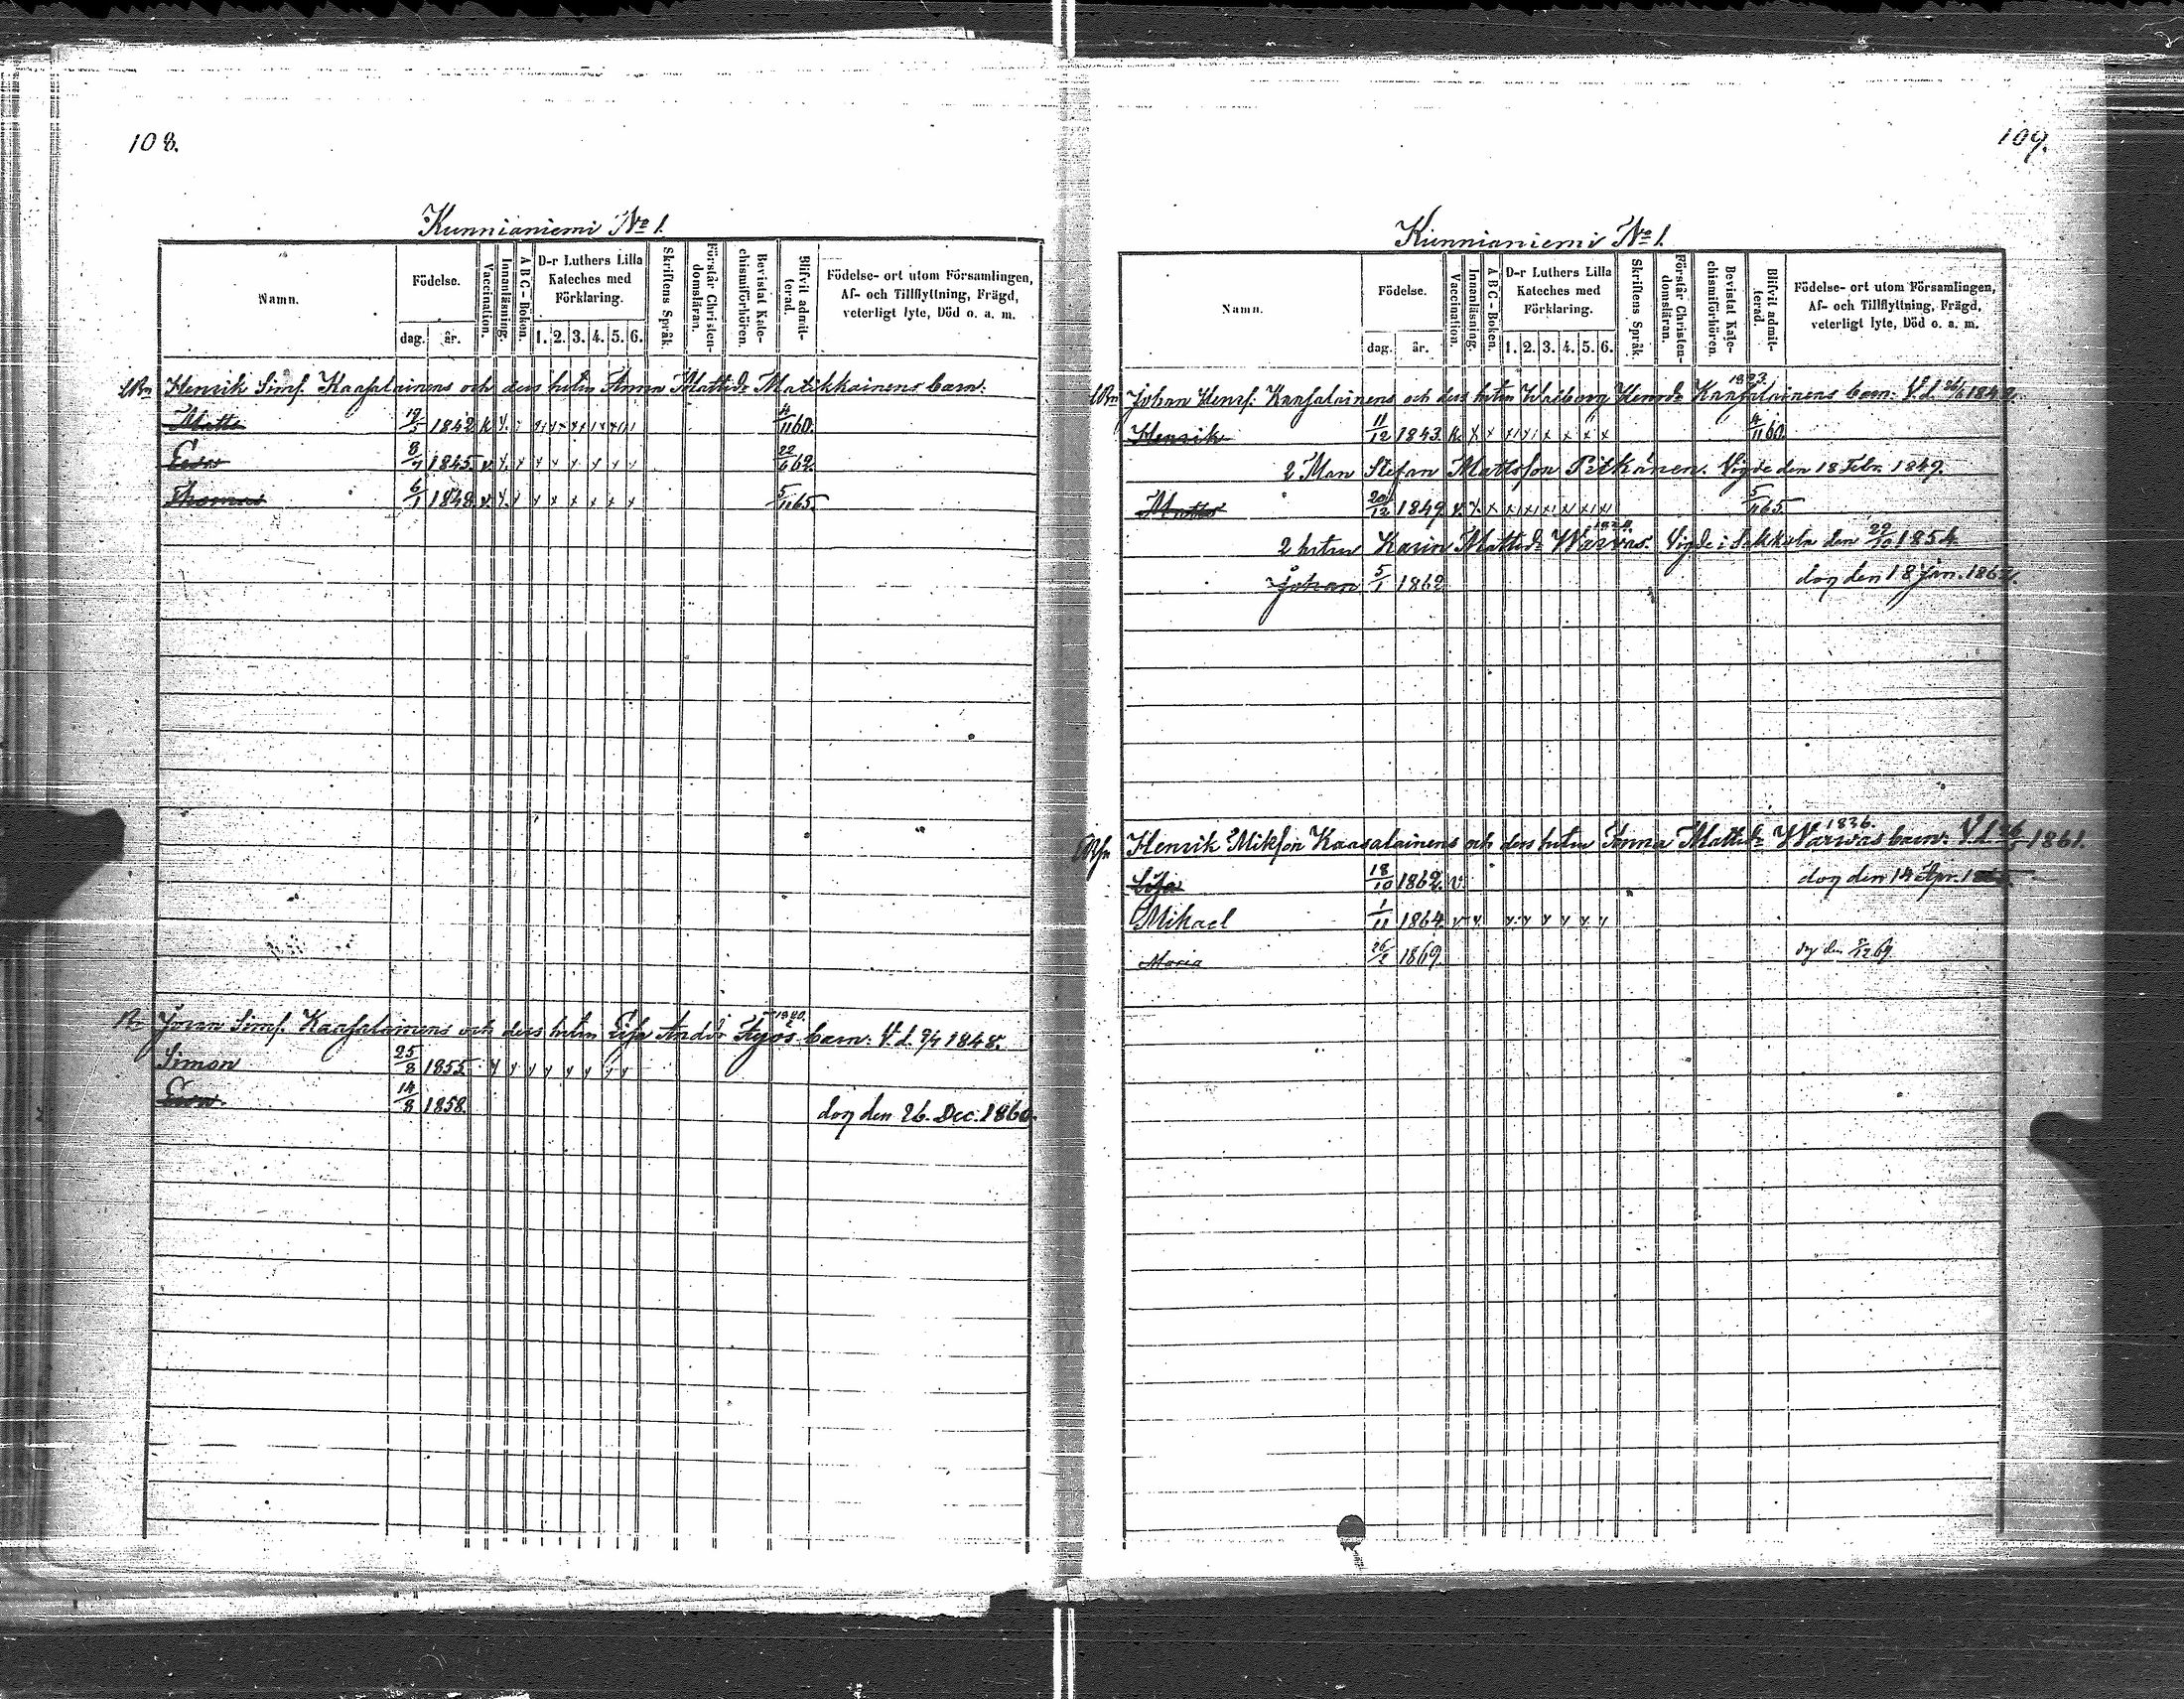 108.
Kunnianiemi No 1.
Namn.
Födelse.
dag.
år.
Vaccination.
Innanläsning.
A B C - Boken.
D-r Luthers Lilla
Kateches med
Förklaring.
1. 2. 3. 4. 5. 6.
Skriftens Språk.
Förstår Christen-
domsläran.
Bevistat Kate-
chismiförhören.
Blifvit admit-
terad.
Födelse- ort utom Församlingen,
Af- och Tillflyttning, Frägd,
veterligt lyte, Död o. a. m.
Henrik Sims. Kaasalainens och dess hstru Anna Mattsdr Matikkainens barn.
Matts 19/5 1842 4/11 60.
Eva 8/7 1845 22/6 62.
Thomas 6/1 1848 5/11 65.
Johan Sims. Kaasalainens och dess hstru Lisa Andsdr Äyös barn. V.d. 9/4 1848.
Simon 25/8 1855
Eva 14/8 1858 dog den 26. Dec. 1860.
109.
Kunnianiemi No 1.
Namn.
Födelse.
dag.
år.
Vaccination.
Innanläsning.
A B C - Boken.
D-r Luthers Lilla
Kateches med
Förklaring.
1. 2. 3. 4. 5. 6.
Skriftens Språk.
Förstår Christen-
domsläran.
Bevistat Kate-
chismiförhören.
Blifvit admit-
terad.
Födelse- ort utom Församlingen,
Af- och Tillflyttning, Frägd,
veterligt lyte, Död o. a. m.
1823.
Johan Henrs. Kaasalainens och dess hstru Walborg Henrsdr Kaasalainens barn. V.d. 1842.
Henrik 11/12 1843. 4/11 60.
2 Man Stefan Mattsson Pitkänen. Vigde den 18 Febr. 1849.
Matts 20/12 1849 5/11 65
2 hstru Karin Mattsdr Warwas. Vigde i Sakkola den 29/10 1854.
Johan 5/1 1862 dog den 18 Jan. 1862.
1836.
Henrik Mikson Kaasalainens och dess hstru Anna Mattsdr Warwas barn. V.d. 1861.
Lisa 18/10 1862. v. dog den 14 Apr.
Mikael 1/11 1864
Maria 26/2 1869 dog den 69.